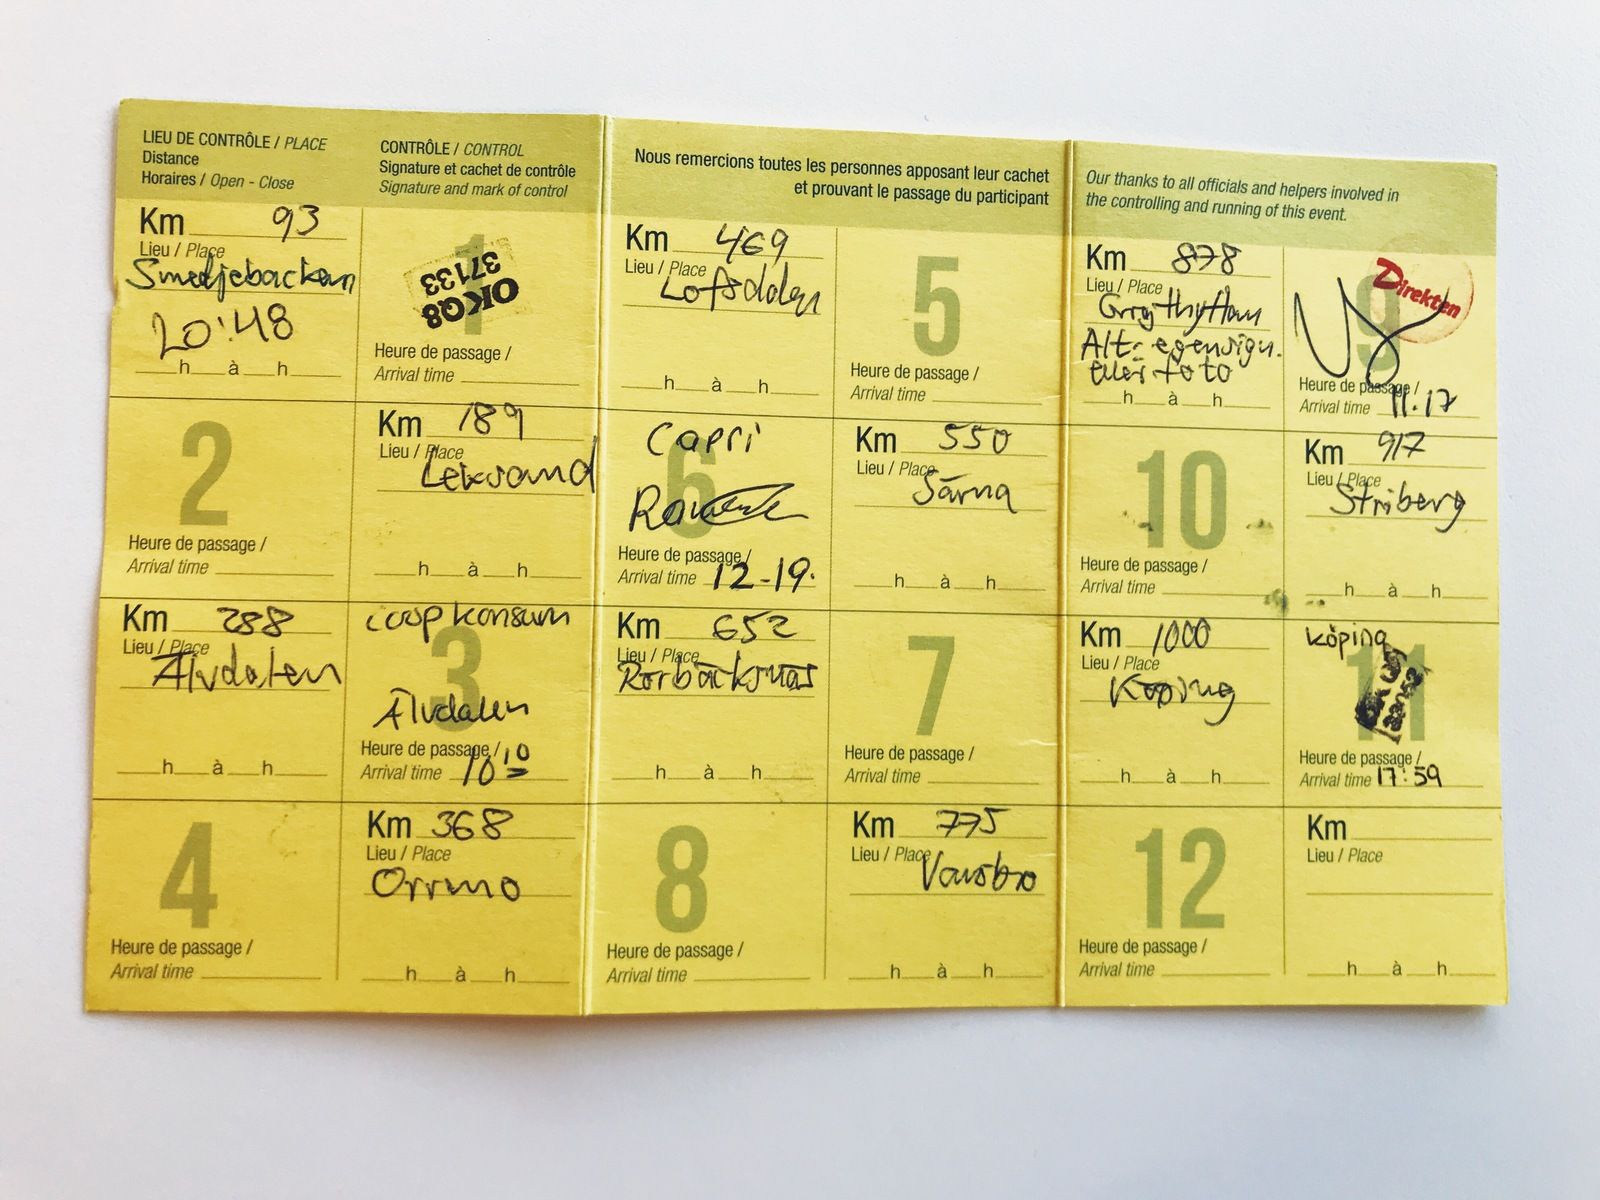 LIEU DE CONTRÔLE / PLACE
Distance
Horaires / Open - Close
CONTRÔLE / CONTROL
Signature et cachet de contrôle
Signature and mark of control
Km 93
Lieu / Place
Smedjebacken
20:48
h à h
1
OKQ8
37133
Heure de passage /
Arrival time
2
Heure de passage /
Arrival time
Km 189
Lieu / Place
Leksand
h à h
Km 288
Lieu / Place
Älvdalen
h à h
coop konsum
3
Älvdalen
Heure de passage /
Arrival time 10 10
4
Heure de passage /
Arrival time
Km 368
Lieu / Place
Orrmo
h à h
Nous remercions toutes les personnes apposant leur cachet
et prouvant le passage du participant
Km 469
Lieu / Place
Lofsdalen
h à h
5
Heure de passage /
Arrival time
Capri
6
Heure de passage /
Arrival time 12-19.
Km 550
Lieu / Place
Särna
h à h
Km 652
Lieu / Place
Rörbäcksnäs
h à h
7
Heure de passage /
Arrival time
8
Heure de passage /
Arrival time
Km 775
Lieu / Place
Vansbro
h à h
Our thanks to all officials and helpers involved in
the controlling and running of this event.
Km 878
Lieu / Place
Grythyttan
Alt: egensign.
eller foto
h à h
Direkten
9
Heure de passage /
Arrival time 11.17
10
Heure de passage /
Arrival time
Km 917
Lieu / Place
Striberg
h à h
Km 1000
Lieu / Place
Köping
h à h
Köping
11
Heure de passage /
Arrival time 17:59
12
Heure de passage /
Arrival time
Km
Lieu / Place
h à h